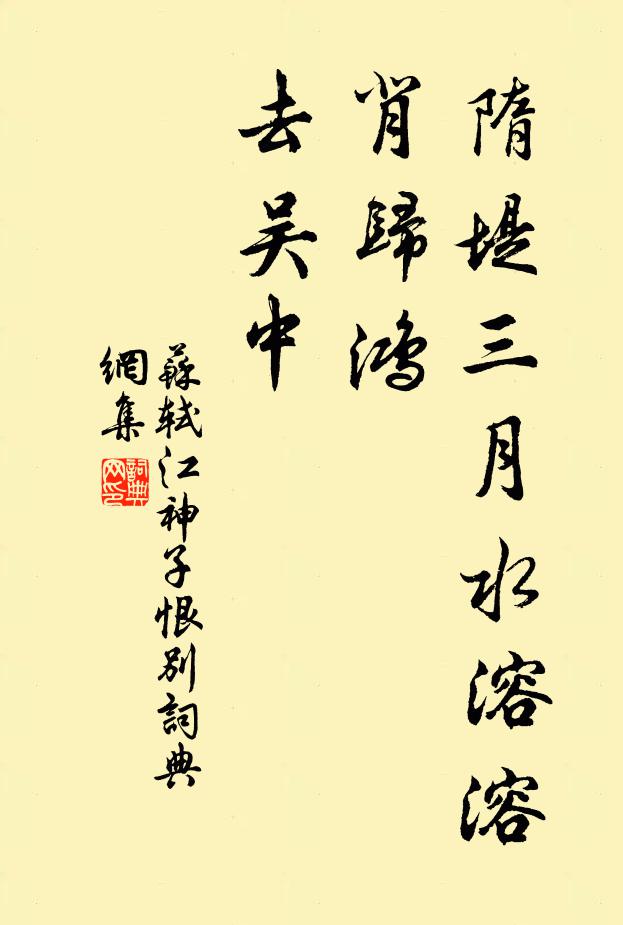 隋堤三月水溶溶
背歸鴻
去吴中
蘇軾江神子恨别詞典
網集
詞典
网印